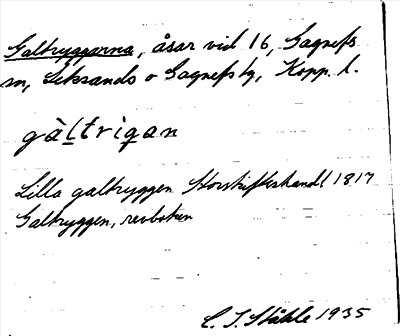 Galtryggarna, åsar vid 16, Gagnefs
sn, Leksands o Gagnefs tg, Kopp. l.
gàltrìgan
Lilla galtryggen Storskifteshandl 1817
Galtryggen, revboken
C. I. Ståhle 1935